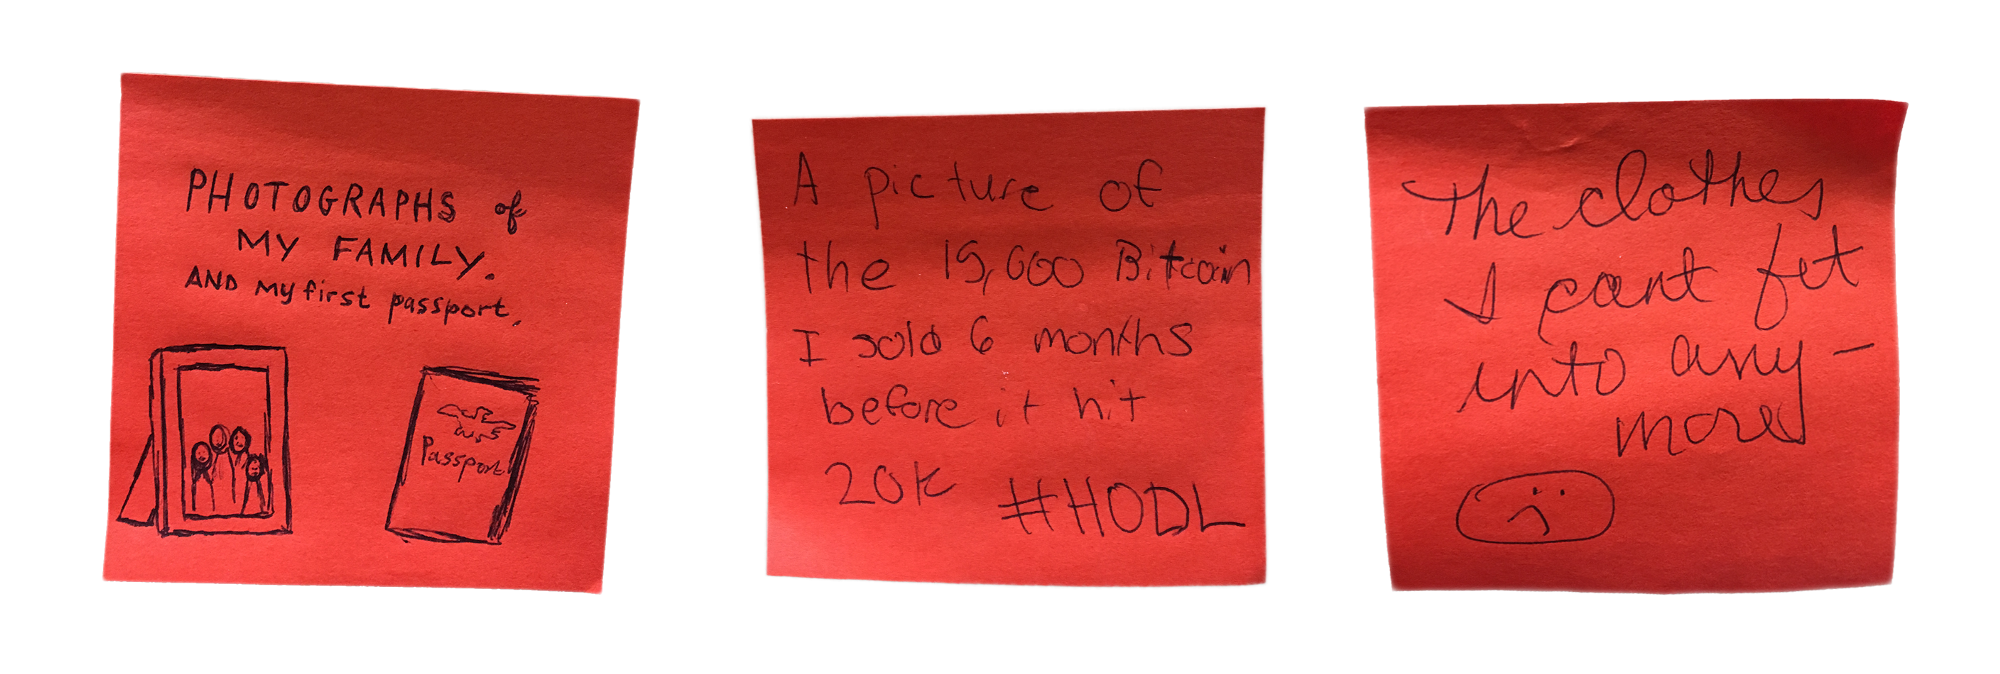 PHOTOGRAPHS of
MY FAMILY.
AND My first passport.
Passport
A picture of
the 15,000 Bitcoin
I sold 6 months
before it hit
20k #HODL
The clothes
I cant fit
into any-
more